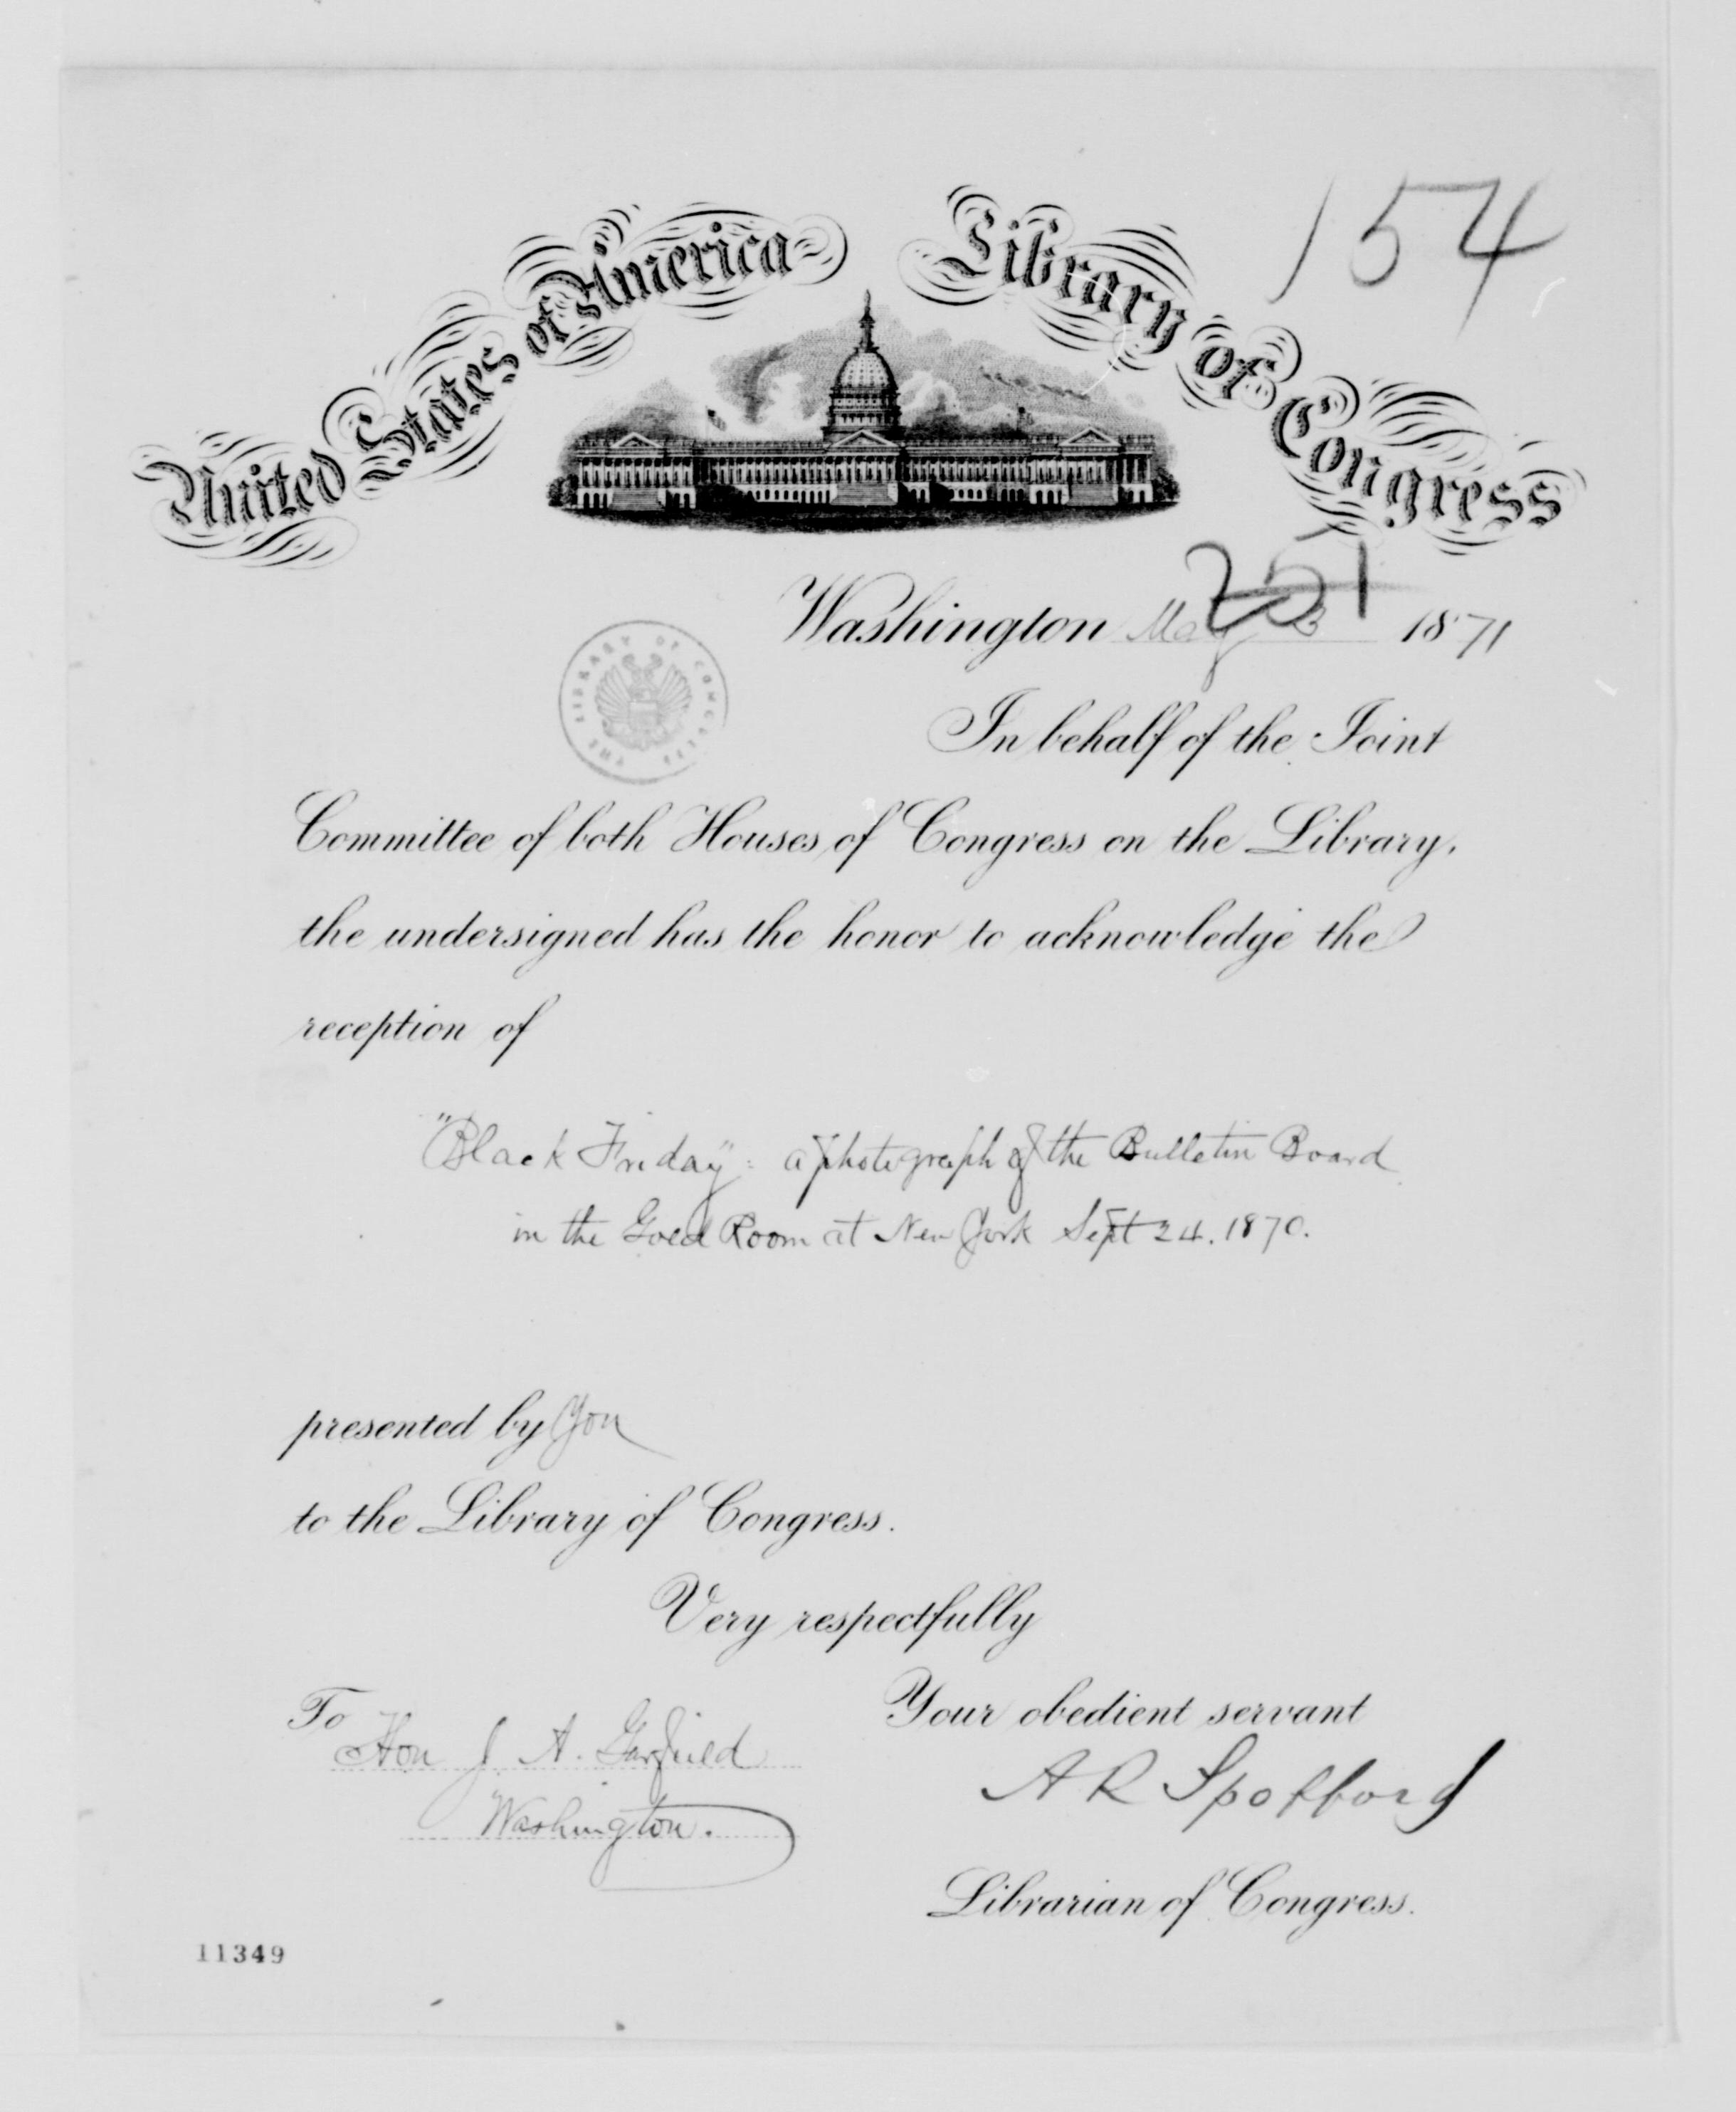 154
United States of America Library of Congress
251
Washington May 3 1871
THE LIBRARY OF CONGRESS
In behalf of the Joint
Committee of both Houses of Congress on the Library,
the undersigned has the honor to acknowledge the
reception of
"Black Friday": a photograph of the Bulletin Board
in the Gold Room at New York Sept 24. 1870.
presented by you
to the Library of Congress.
Very respectfully
Your obedient servant
To
Hon J. A. Garfield
Washington.
A R Spofford
Librarian of Congress.
11349